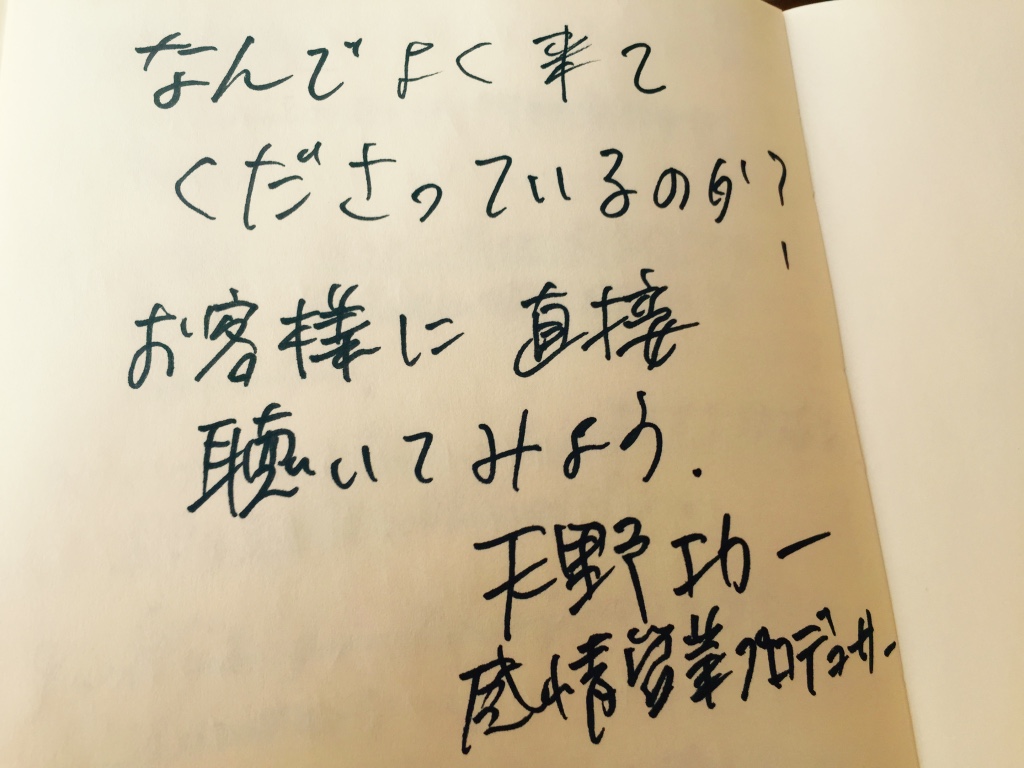 なんでよく来て
くださっているのか?
お客様に直接
聴いてみよう.
天野功一
感情営業プロデューサー